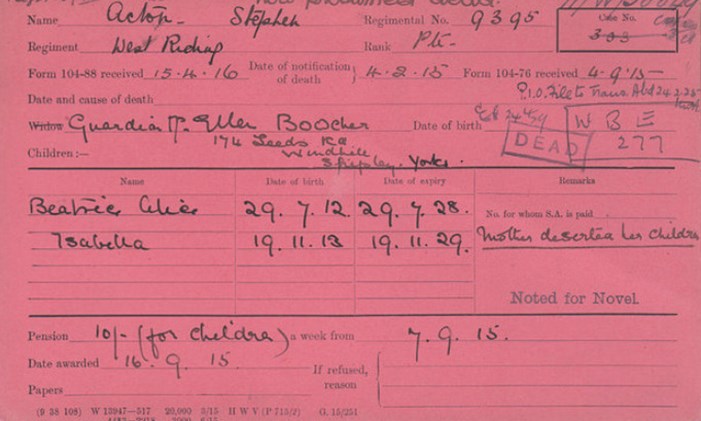 Name Acton Stephen Regimental No. 9395 Case No.
Regiment West Riding Rank Pte. 303
Form 104-88 received 15.4.16 Date of notification of death } 4.2.15 Form 104-76 received 4.9.15
Date and cause of death
Widow Guardian Ellen Boocher Date of birth DEAD W B E
174 Leeds Rd 277
Children:— Windhill
Shipley. Yorks.
Name Date of birth Date of expiry Remarks
Beatrice Alice 29.7.12. 29.7.28. No. for whom S.A. is paid
Isabella 19.11.13 19.11.29. Mother deserted her children
Noted for Novel.
Pension 10/- (for children) a week from 7.9.15.
Date awarded 16.9.15. If refused,
Papers reason
(9 38 108) W 13947—517 20,000 3/15 H W V (P 715/2) G. 15/251